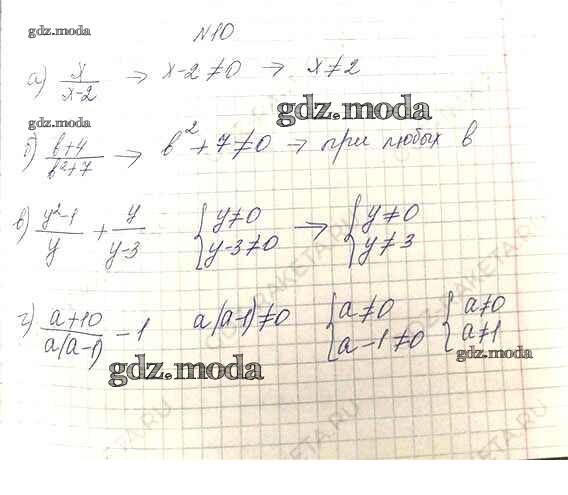 gdz.moda
№10
а) x/(x-2) → x-2≠0 → x≠2
gdz.moda
gdz.moda
б) (b+4)/(b²+7) → b²+7≠0 → при любых b
в) (y²-1)/y + y/(y-3) { y≠0 y-3≠0 → { y≠0 y≠3
г) (a+10)/(a(a-1)) - 1 a(a-1)≠0 { a≠0 a-1≠0 { a≠0 a≠1
gdz.moda
gdz.moda